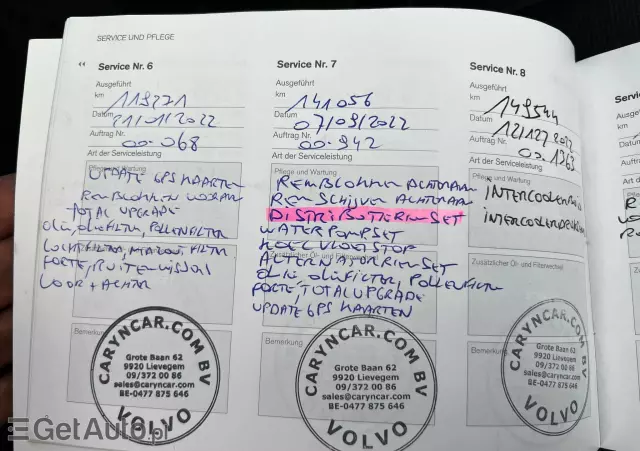 SERVICE UND PFLEGE
Service Nr. 6
Ausgeführt
km 119221
Datum 21/01/2022
Auftrag Nr. 00.068
Art der Serviceleistung
Pflege und Wartung
UPDATE GPS KAARTEN
REMBLOKKEN VOORAAN
TOTAL UPGRADE
OLIE, OLIEFILTER, POLLENFILTER
LUCHTFILTER,
FORTE, RUITENWISSERS
VOOR + ACHTER
Bemerkung
CARYNCAR.COM BV
Grote Baan 62
9920 Lievegem
09/372 00 86
sales@caryncar.com
BE-0477 875 646
VOLVO
Service Nr. 7
Ausgeführt
km 141056
Datum 07/09/2022
Auftrag Nr. 00.942
Art der Serviceleistung
Pflege und Wartung
REMBLOKKEN ACHTERAAN
REMSCHIJVEN ACHTERAAN
DISTRIBUTIERIEMSET
WATERPOMPSET
KOELVLOEISTOF
ALTERNATORRIEMSET
Zusätzlicher Öl- und Filterwechsel
OLIE OLIEFILTER, POLLENFILTER
FORTE, TOTAL UPGRADE
UPDATE GPS KAARTEN
Bemerkung
CARYNCAR.COM BV
Grote Baan 62
9920 Lievegem
09/372 00 86
sales@caryncar.com
BE-0477 875 646
VOLVO
Service Nr. 8
Ausgeführt
km 149544
Datum 12/12/2022
Auftrag Nr. 00.1363
Art der Serviceleistung
Pflege und Wartung
Zusätzlicher Öl- und Filterwechsel
Bemerkung
CARYNCAR.COM BV
Grote Baan 62
9920 Lievegem
09/372 00 86
sales@caryncar.com
BE-0477 875 646
VOLVO
Service
Ausgeführt
km
Datum
Auftrag
Art der
GetAuto.pl